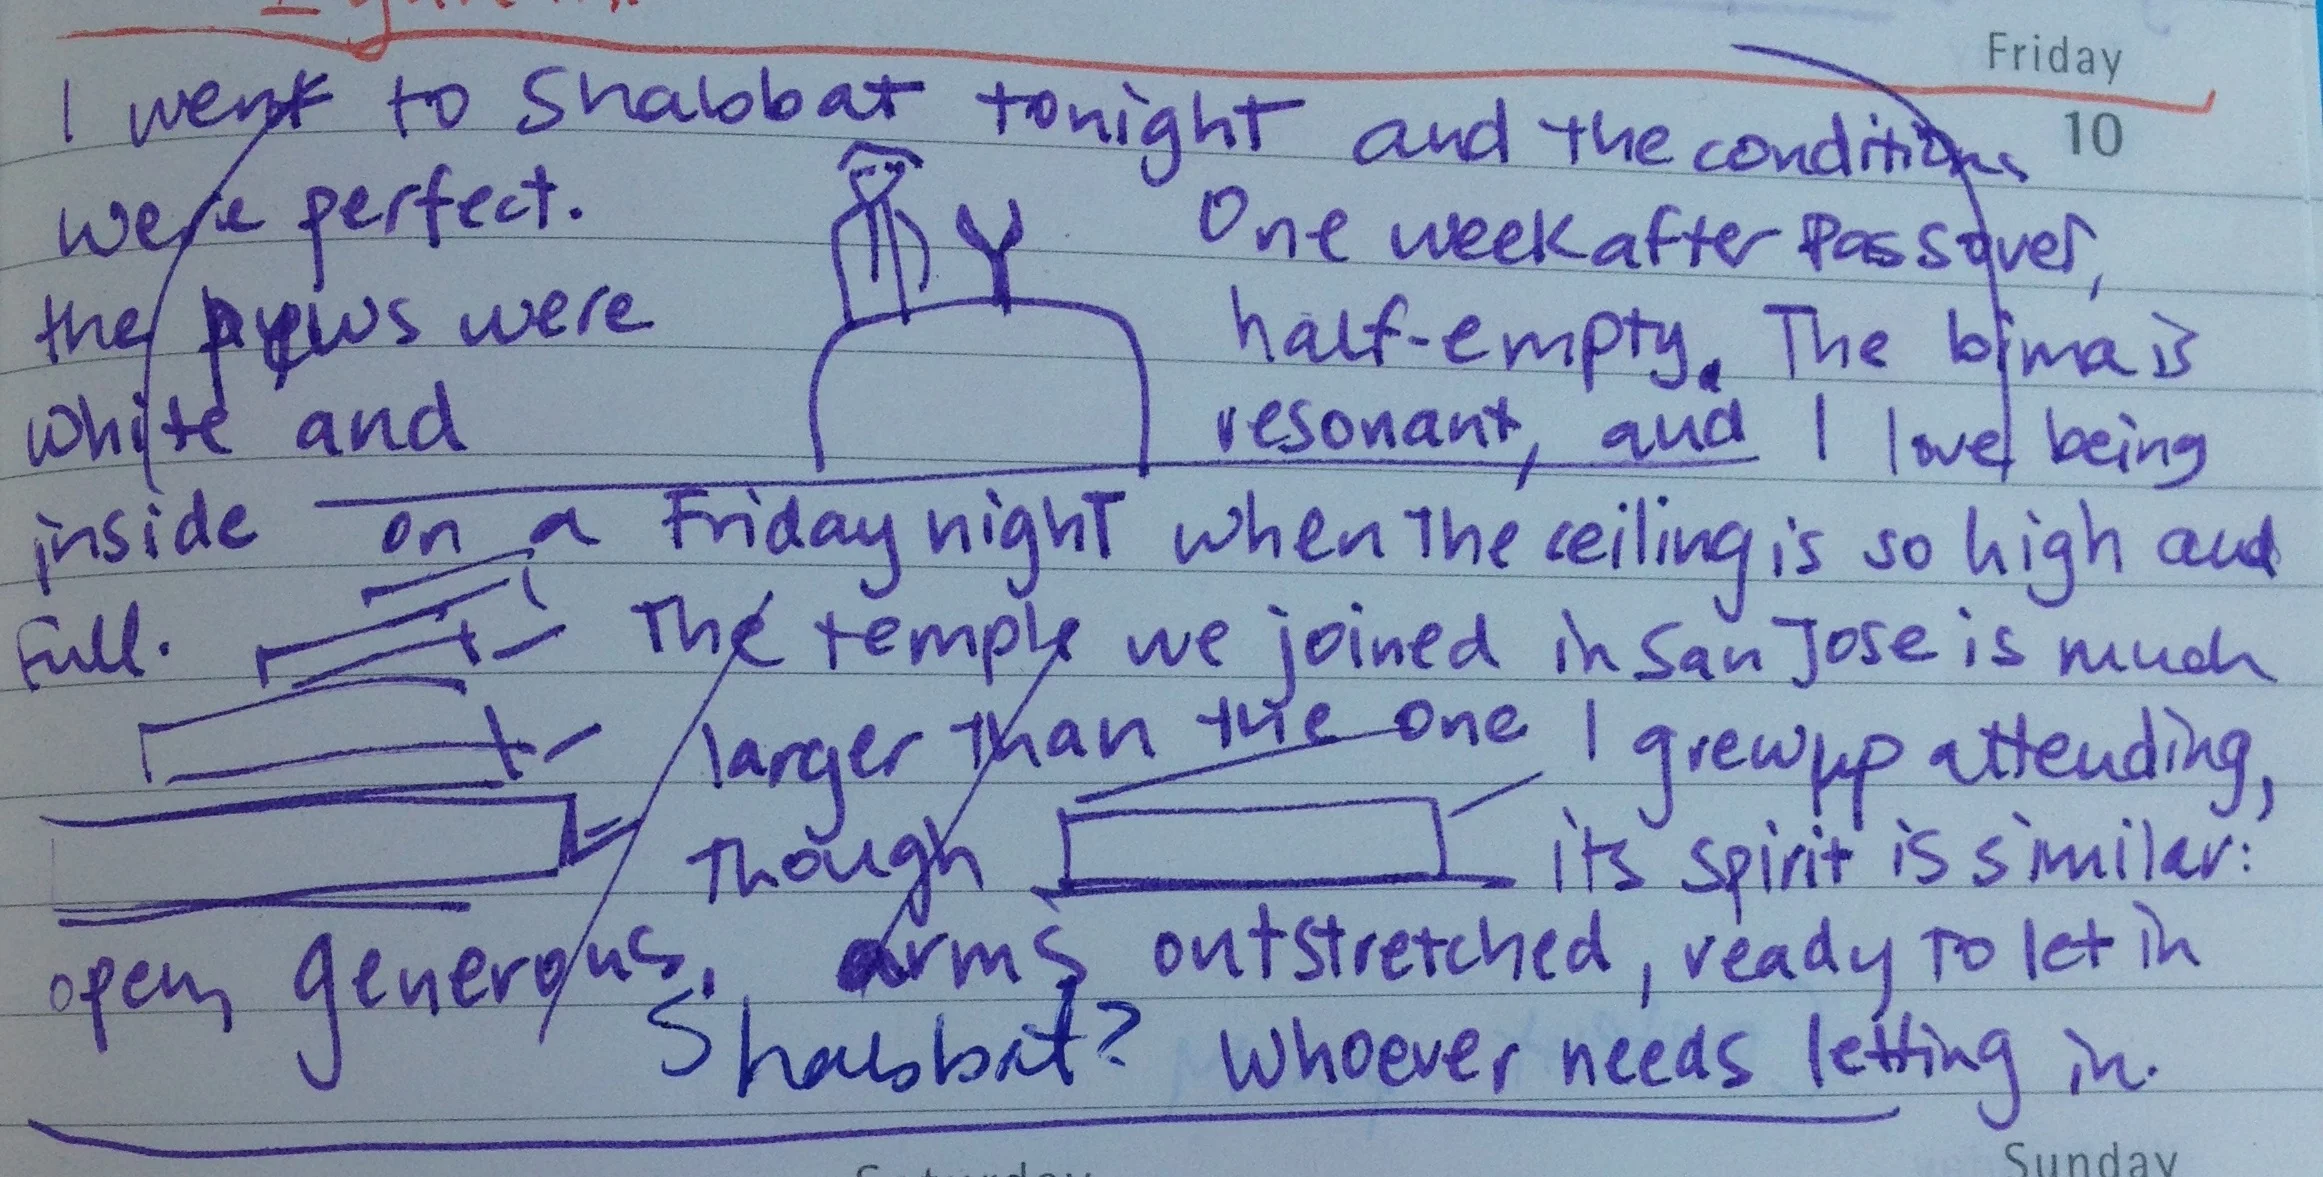 Friday
10
I went to Shabbat tonight and the conditions
were perfect. One week after Passover,
the pews were half-empty. The bima is
white and resonant, and I love being
inside on a Friday night when the ceiling is so high and
full. The temple we joined in San Jose is much
larger than the one I grew up attending,
though its spirit is similar:
open, generous, arms outstretched, ready to let in
Shabbat? whoever needs letting in.
Saturday
Sunday